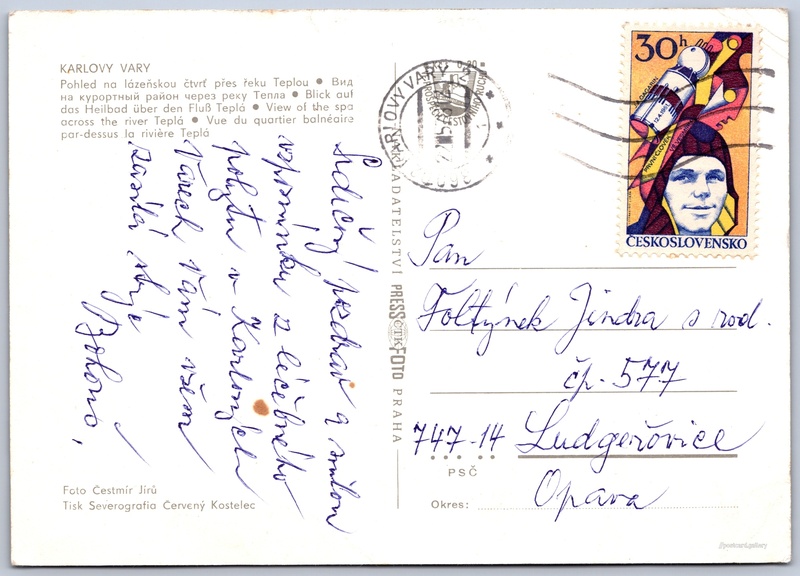 KARLOVY VARY
Pohled na lázeňskou čtvrť přes řeku Teplou • Вид
на курортный район через реку Тепла • Blick auf
das Heilbad über den Fluß Teplá • View of the spa
across the river Teplá • Vue du quartier balnéaire
par-dessus la rivière Teplá
Srdečný pozdrav a milou
vzpomínku z léčebného
pobytu v Karlových
Varech Vám všem
zasílá strýc
Foto Čestmír Jírů
Tisk Severografia Červený Kostelec
NAKLADATELSTVÍ PRESSFOTO PRAHA
ČTK
KARLOVY VARY
0,80
30h
J. GAGARIN
12.4.1961
PRVNÍ ČLOVĚK
ČESKOSLOVENSKO
Pan
Foltýnek Jindra s rod.
čp. 577
747-14 Ludgeřovice
PSČ
Okres: Opava